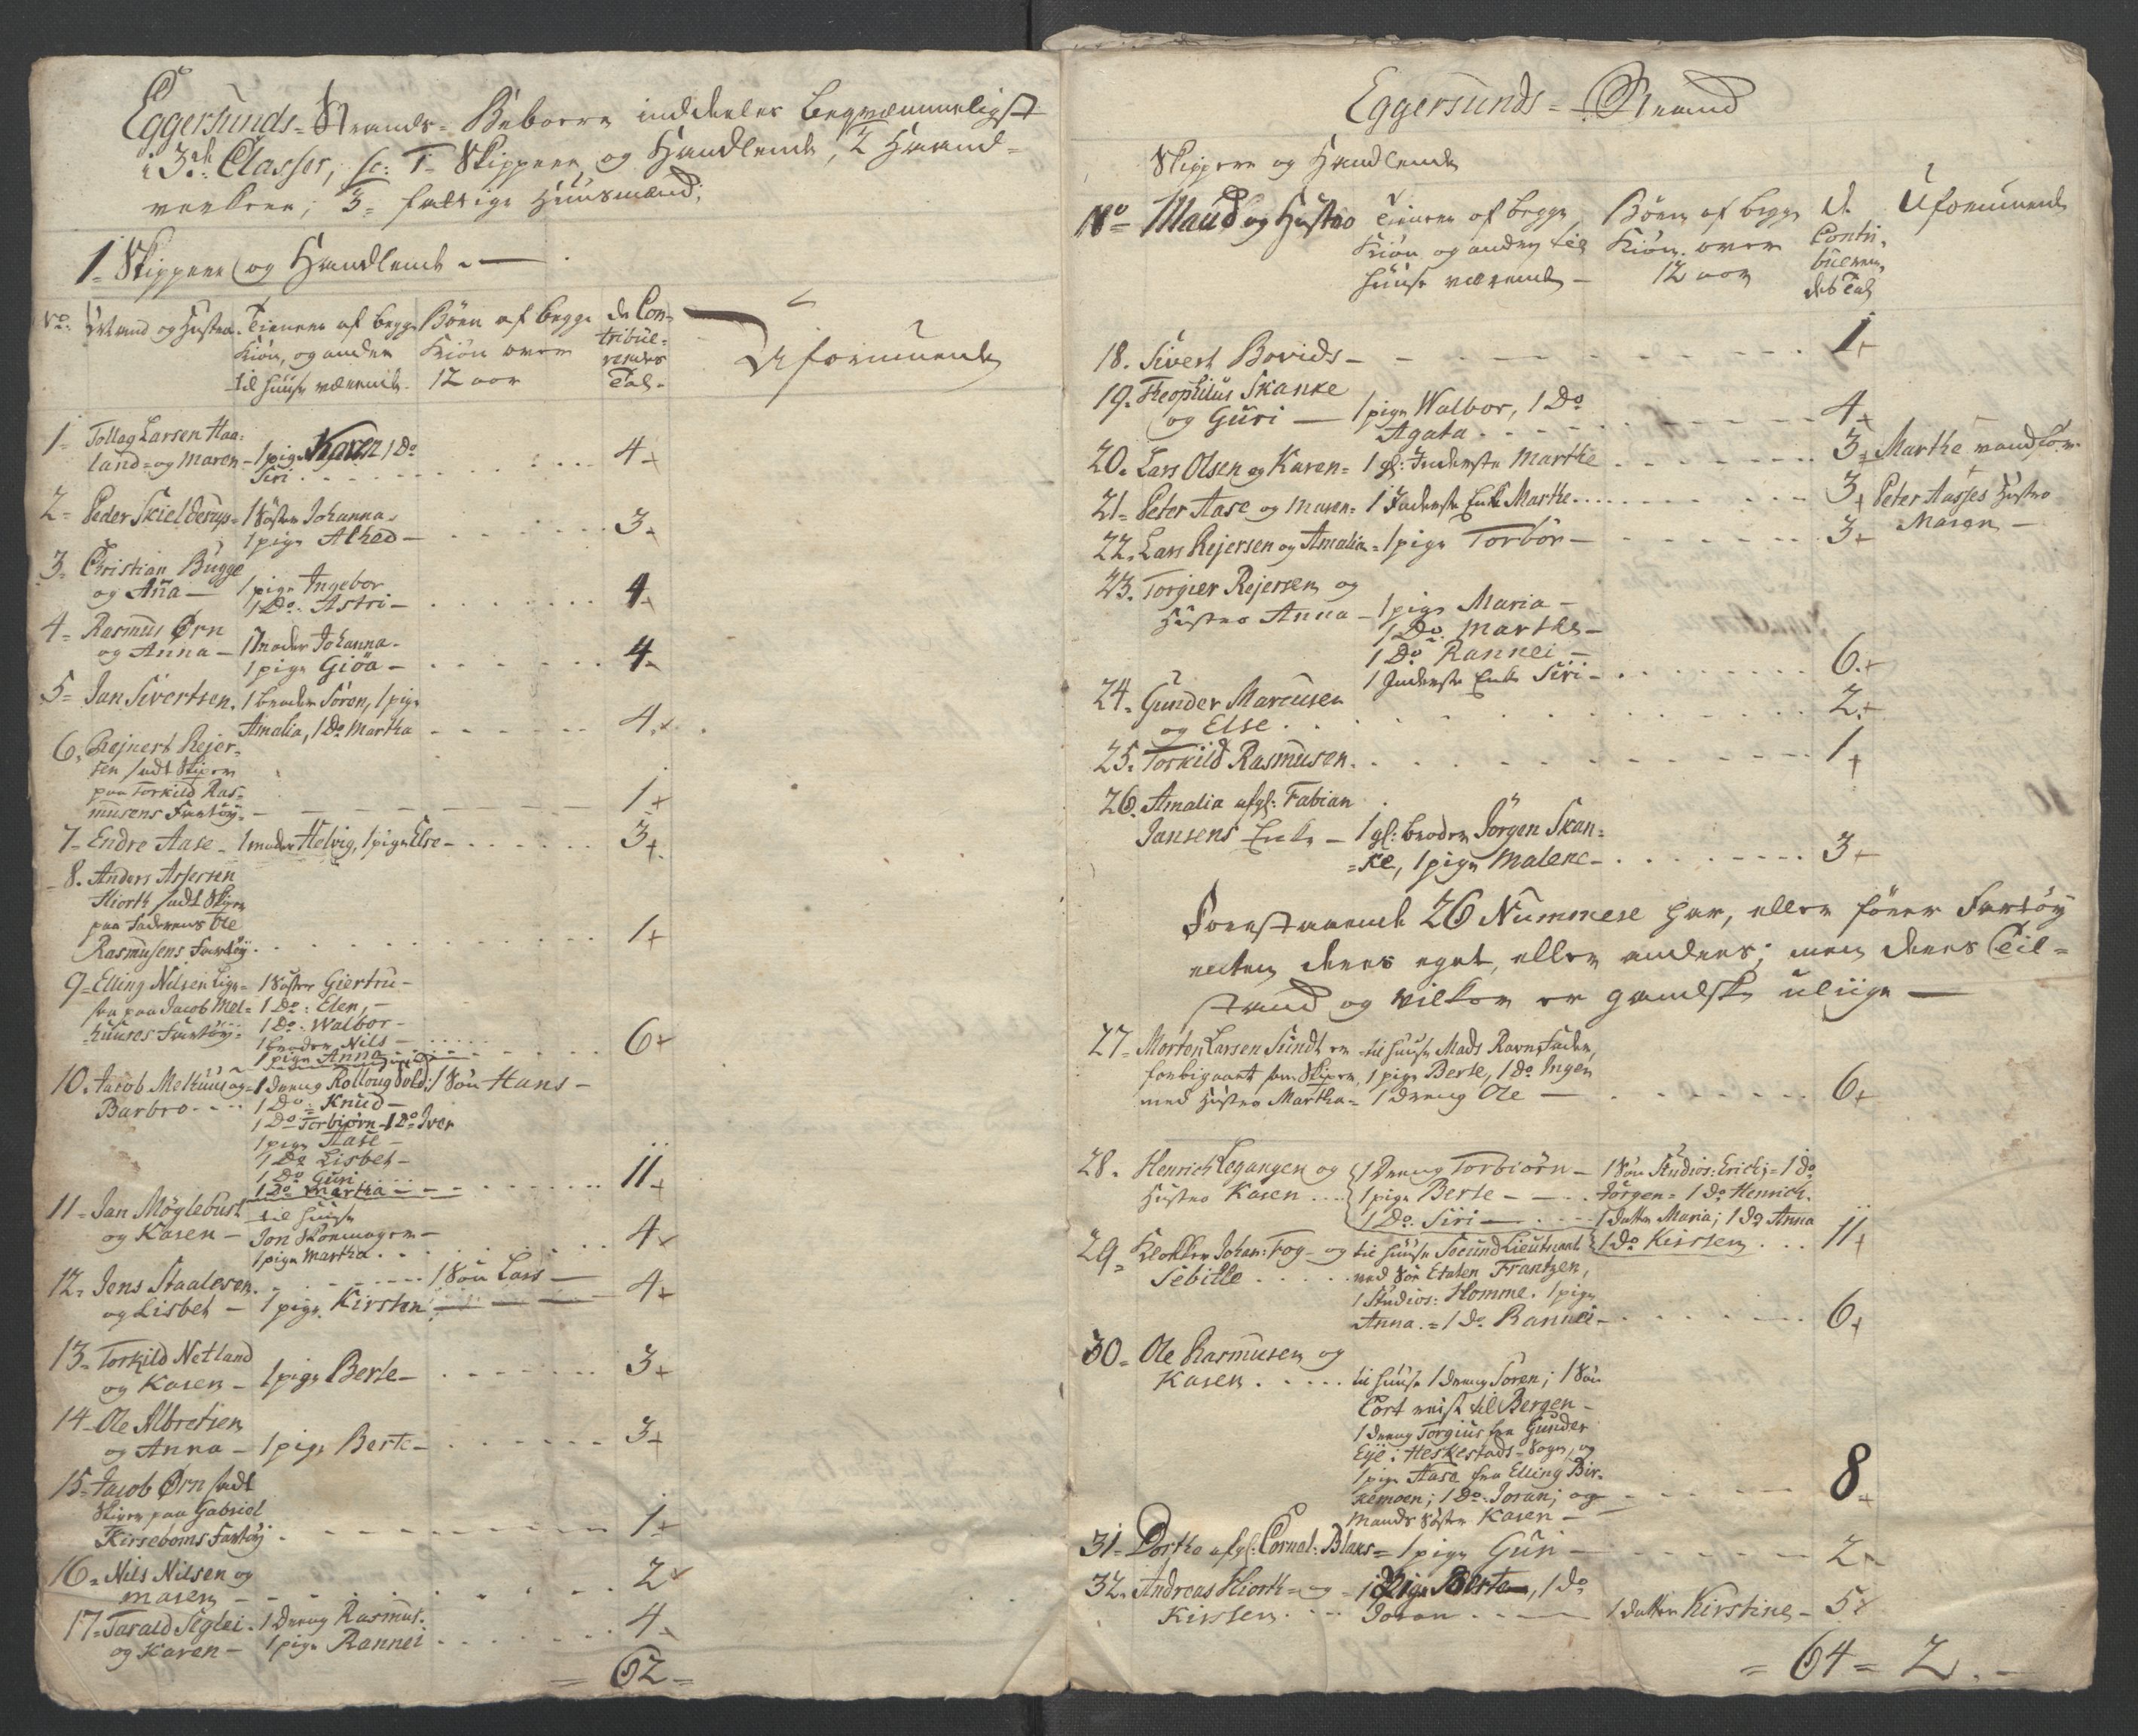 Eggersunds-Strands-Beboere inddeeles beqvæmmeligst
i 3de Classer, sc: 1- Skippere og Handlende, 2 Haand-
verkere; 3- fattige Huusmænd:
1- Skippere og Handlende -
No: Mand og Hustro. Tienere af begge Kiön, og anden til huuse værende. Börn af begge Kiön over 12 aar de Contribuerendes Tal. Uformuende
1- Tollag Larsen Haa-
land og Maren - 1 pige Karen 1 Do
Siri 4
2- Peder Skielderup 1 Söster Johanna.
1 pige Ahed 3
3- Christian Bugge
og Aña - 1 pige Ingebor
1 Do: Astri 4
4- Rasmus Ørn
og Anna - 1 moder Johanna.
1 pige Giöa 4
5- Jan Sivertsen. 1 broder Sören, 1 pige
Amalia, 1 Do Martha 4
6. Rejnert Rejer-
sen sadt Skiper
paa Torkild Ras-
musens Fartöy 1
7- Endre Aase - 1 moder Helvig, 1 pige Else 3
8. Anders Assersen
Hiorth sadt Skiper
paa Faderens Ole
Rasmusens Fartöy 1
9- Elling Nilsen lige- 1 Söster Giertru-
saa paa Jacob Mel- 1 Do: Elen,
huuses Fartöy 1 Do: Walbor
1 broder Nils
1 pige Anna 6
10. Jacob Melhuus og 1 dreng Rolloug Sold: 1 Sön Hans
Barbro 1 Do: Knud
1 Do Torbiörn 1 Do Iver
1 pige Aase
1 Do Lisbet
1 Do Guri
1 Do Martha 11
11- Jan Möglebust til huuse
og Karen - Jon Skoemager
1 pige Martha 4
12- Jens Staalesen 1 Sön Lars
og Lisbet - 1 pige Kirsten 4
13- Torkild Netland
og Karen - 1 pige Berte 3
14- Ole Albretsen
og Anna - 1 pige Berte 3
15- Jacob Ørn sadt
Skiper paa Gabriel
Kirseboms Fartöy 1
16- Nils Nilsen og
Maren 2
17- Tarald Siglei. 1 dreng Rasmus.
og Karen - 1 pige Rannei 4
= 62 =
Eggersunds-Strand
Skippere og Handlende
No Mand og Hustro Tienere af begge Kiön og anden til huuse værende Börn af begge Kiön over 12 aar d. Contribuerendes Tal Uformuende
18. Sivert Bovids 1
19. Theophilus Skanke
og Guri - 1 pige Walbor, 1 Do
Agata 4
20. Lars Olsen og Karen 1 gl: Inderste Marthe 3 Marthe
21- Peter Aase og Maren 1 Inderste Enke Marthe 3 Peter Aases Hustro
Maren
22. Lars Rejersen og Amalia 1 pige Torbör 3
23. Torgier Rejersen og
Hustro Anna - 1 pige Maria
1 Do Marthe
1 Do Rannei
1 Inderste Enke Siri 6
24. Gunder Marcusen
og Else 2
25. Torkild Rasmusen 1
26. Amalia afgl: Fabian
Jansens Enke - 1 gl: broder Jörgen Skan-
ke, 1 pige Malene 3
Forestaaende 26 Nummere har, eller förer Fartöy
enten deres eget, eller andres; men deres Til-
stand og vilkor er gandske uliige -
27- Morten Larsen Sundt er til huuse Mads Ravn Fader,
forbigaaet som Skiper, 1 pige Berte, 1 Do Inger
med Hustro Martha 1 dreng Ole 6
28. Henrich Legangen og 1 Dreng Torbiörn - 1 Sön Studios: Erich; 1 do
Hustro Karen 1 pige Berte Jörgen 1 do Henrich.
1 Do: Siri 1 datter Maria; 1 do Anna
1 Do Kirsten 11
29- Klokker Johan: Fog og til huuse Secund Lieutnant
Sebille ved Söe Etaten Frantzen,
1 Studios: Homme. 1 pige
Anna. 1 Do Rannei 6
30- Ole Rasmusen og
Karen til huuse 1 dreng Sören; 1 Sön
Cort reist til Bergen
1 dreng Torgius fra Gunder
Eye i Heskestads-Sogn, og
1 pige Aase fra Elling Bir-
kemoen; 1 Do: Joran; og
Mands Söster Karen 8
31- Dorthe afgl: Cornel: Blaus 1 pige Guri 2
32. Andreas Hiorth og 1 Pige Berte, 1 do
Kirsten Joran 1 datter Kirstine 5
= 64 = 2.